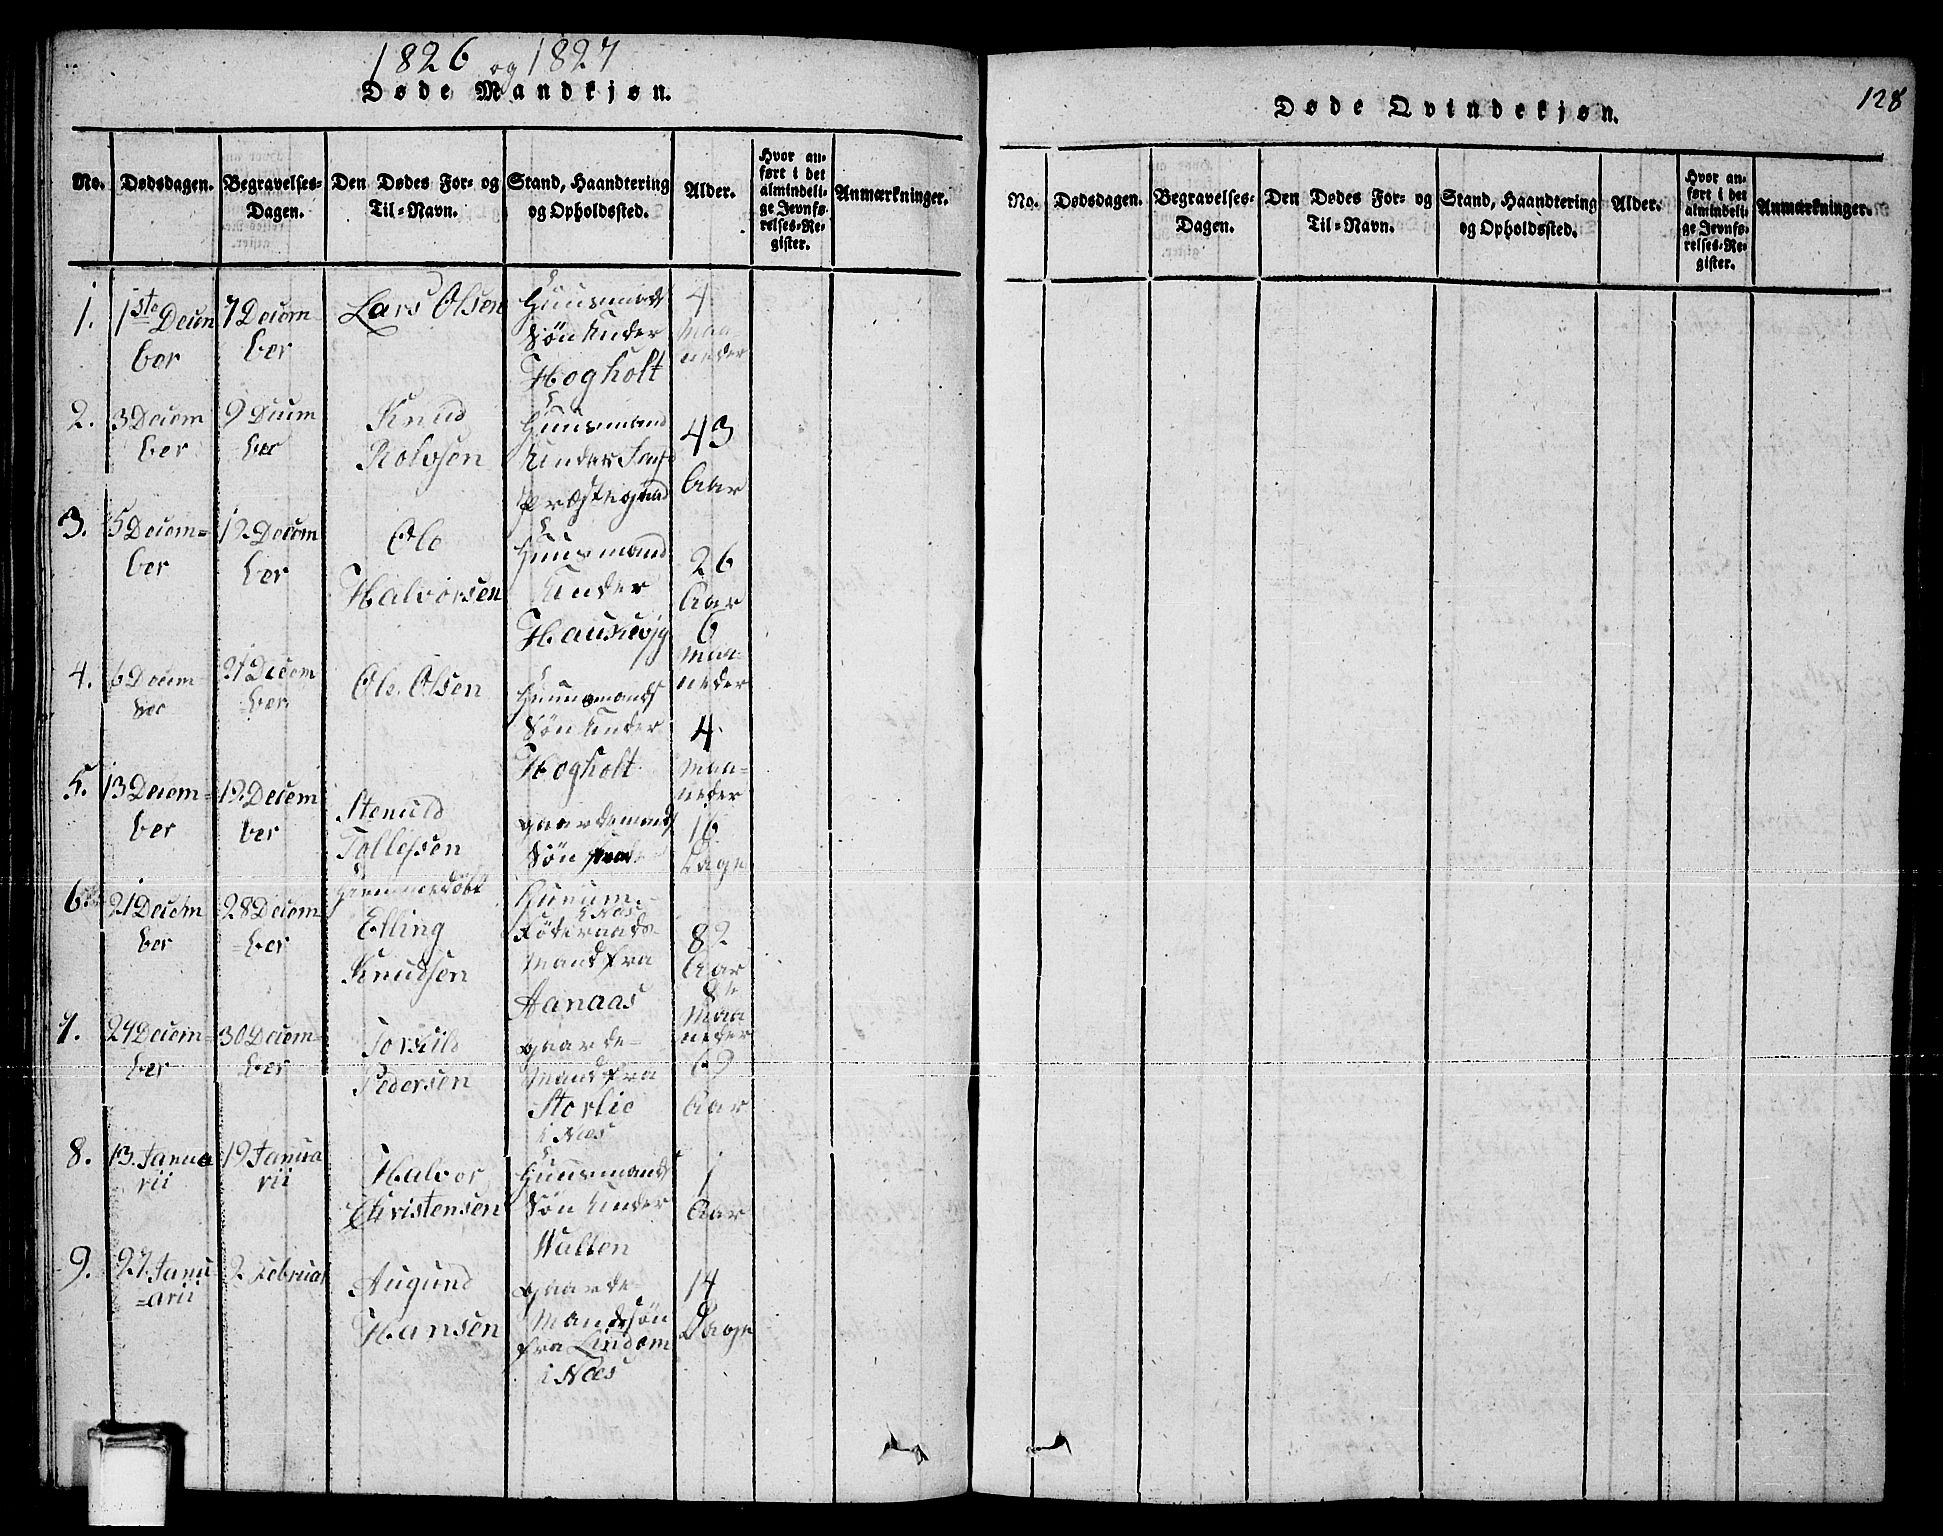 1826 og 1827
Døde Mandkjøn.
No. Dødsdagen. Begravelses-Dagen. Den Dødes For- og Til-Navn. Stand, Haandtering og Opholdssted. Alder. Hvor anført i det almindelige Jevnførelses-Register. Anmærkninger.
1. 1ste Decem 7 Decem- Lars Olsen Huusmands 4
ber ber Søn under Maa-
Hogholt neder
2. 3 Decem 9 Decem Knud Huusmand 43
ber ber Rolvsen under Aar
3. 5 Decem= 12 Decem Ole Huusmand 26
ber ber Halvorsen under Aar
6
Maa-
neder
4. 6 Decem 21 Decem Ole Olsen Huusmands
ber =ber Søn under 4
Hogholt Maa=
neder
5. 13 Decem= 19 Decem Stenuld gaardemands 16
ber ber Tollefsen Søn fra Dage
i Næs
6. 21 Decem 28 Decem Elling Føderaads- 82
ber =ber Knudsen Mand fra Aar
Aanaas 8
Maa
neder
7. 24 Decem= 30 Decem= Torkild gaarde=
ber ber Pedersen Mand fra 63
Storlie Aar
i Næs
8. 13 Janua 19 Janua Halvor Huusmands 1
rii rii Christensen Søn under Aar
Wallen
9. 27. Janu 2 Februar Augund gaarde 14
=arii Hansen Mandssøn Dage
fra Lindem
i Næs
128
Døde Qvindekjøn.
No. Dødsdagen. Begravelses-Dagen. Den Dødes For- og Til-Navn. Stand, Haandtering og Opholdssted. Alder. Hvor anført i det almindelige Jevnførelses-Register. Anmærkninger.